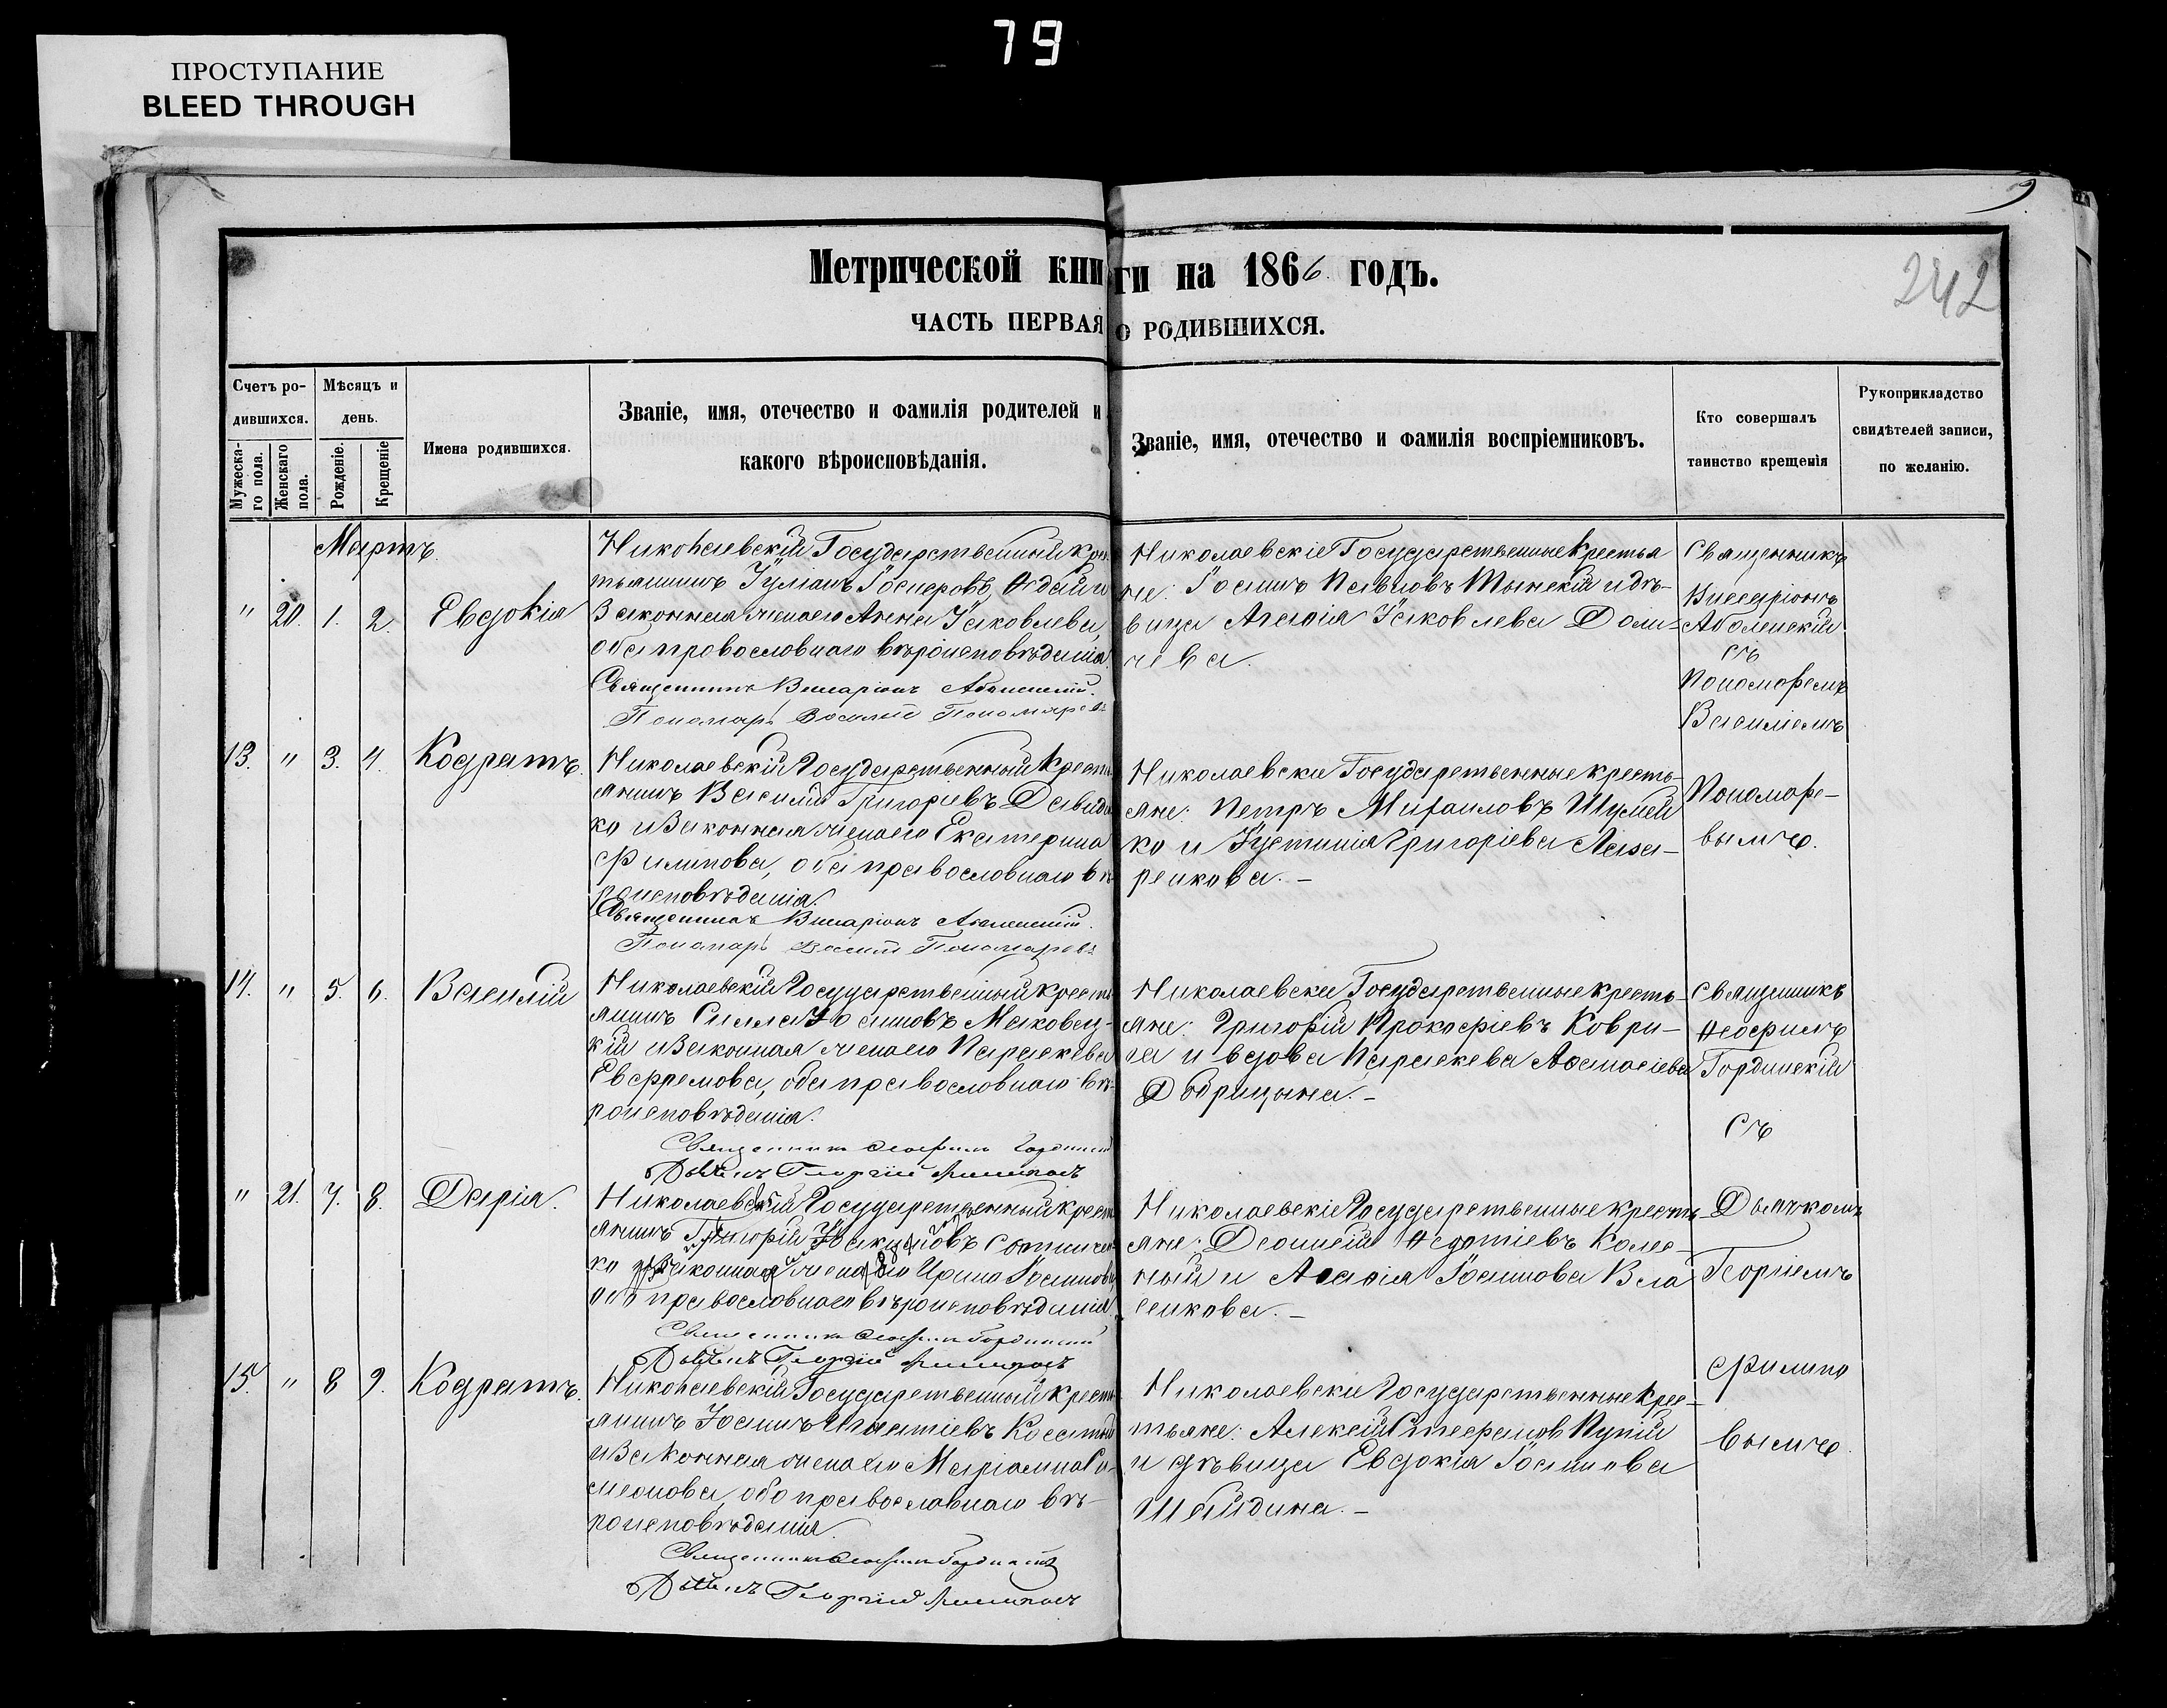 79
ПРОСТУПАНИЕ
BLEED THROUGH
9
242
Метрической книги на 1866. годъ.
ЧАСТЬ ПЕРВАЯ О РОДИВШИХСЯ.
Счетъ ро-
дившихся.
Мужеска-
го пола.
Женскаго
пола.
Мѣсяцъ и
день.
Рожденіе.
Крещеніе
Имена родившихся.
Званіе, имя, отечество и фамилія родителей и
какого вѣроисповѣданія.
Званіе, имя, отечество и фамилія воспріемниковъ.
Кто совершалъ
таинство крещенія
Рукоприкладство
свидѣтелей записи,
по желанію.
Мартъ.
" 20. 1. 2. Евдокія
Николаевскій Государственный Крес
тьянинъ Іуліанъ
Законная жена его Анна Іаковлева,
оба провославнаго вѣроисповѣданія.
Священникъ Виссаріонъ
Пономарь Василій Пономаревъ
Николаевскіе Государственные Крестья
не: Іоаннъ Павловъ Тынскій и дѣ-
вица Агафія Іаковлева
чева.
Священникъ
Виссаріонъ
съ
Пономаремъ
Василіемъ
Пономаре-
вымъ.
13. " 3. 4. Кодратъ.
Николаевскій Государственный Кресть
янинъ Василій Григоріевъ Давиден
ко и Законная жена его Екатерина
Филипова, оба православнаго вѣ
роисповѣданія.
Священникъ Виссаріонъ
Пономарь Василій Пономаревъ
Николаевскіе Государственные Кресть-
яне: Петръ Михаиловъ Шулей
ко и Іустинія Григоріева Лаза-
ренкова.-
14. " 5. 6. Василій
Николаевскій Государственный Кресть
янинъ Іоанновъ Маковец-
кій и Законная жена его Параскева
Евфремова, оба православнаго вѣ-
роисповѣданія.
Священникъ Ѳеофилъ Гординскій
Дьячекъ Георгій
Николаевскіе Государственные Кресть-
яне: Григорій Прокофіевъ Коври-
га и вдова Параскева Аѳанасіева
Добрицына.-
Священникъ
Ѳеофилъ
Гординскій
съ
Дьячкомъ
Георгіемъ
Филипо
вымъ.
" 21. 7. 8. Дарія.
Николаевскій Государственный Кресть
янинъ Григорій Сотничен
ко и Законная жена его Ирина Іоаннова
оба православнаго вѣроисповѣданія
Священникъ Ѳеофилъ Гординскій
Дьячекъ Георгій
Николаевскіе Государственные Кресть
яне: Діонисій Ѳедотіевъ Колес-
ный и Агафія Іоаннова Вла
сенкова.-
15. " 8 9. Кодратъ.
Николаевскій Государственный Кресть
янинъ Іоаннъ Игнатіевъ
и Законная жена его Маріамна Си-
меонова, оба православнаго вѣ-
роисповѣданія.
Священникъ Ѳеофилъ Гординскій
Дьячекъ Георгій
Николаевскіе Государственные Крес-
тьяне: Алексій Стефановъ Пупій
и дѣвица Евдокія Іоаннова
Шайдина.-